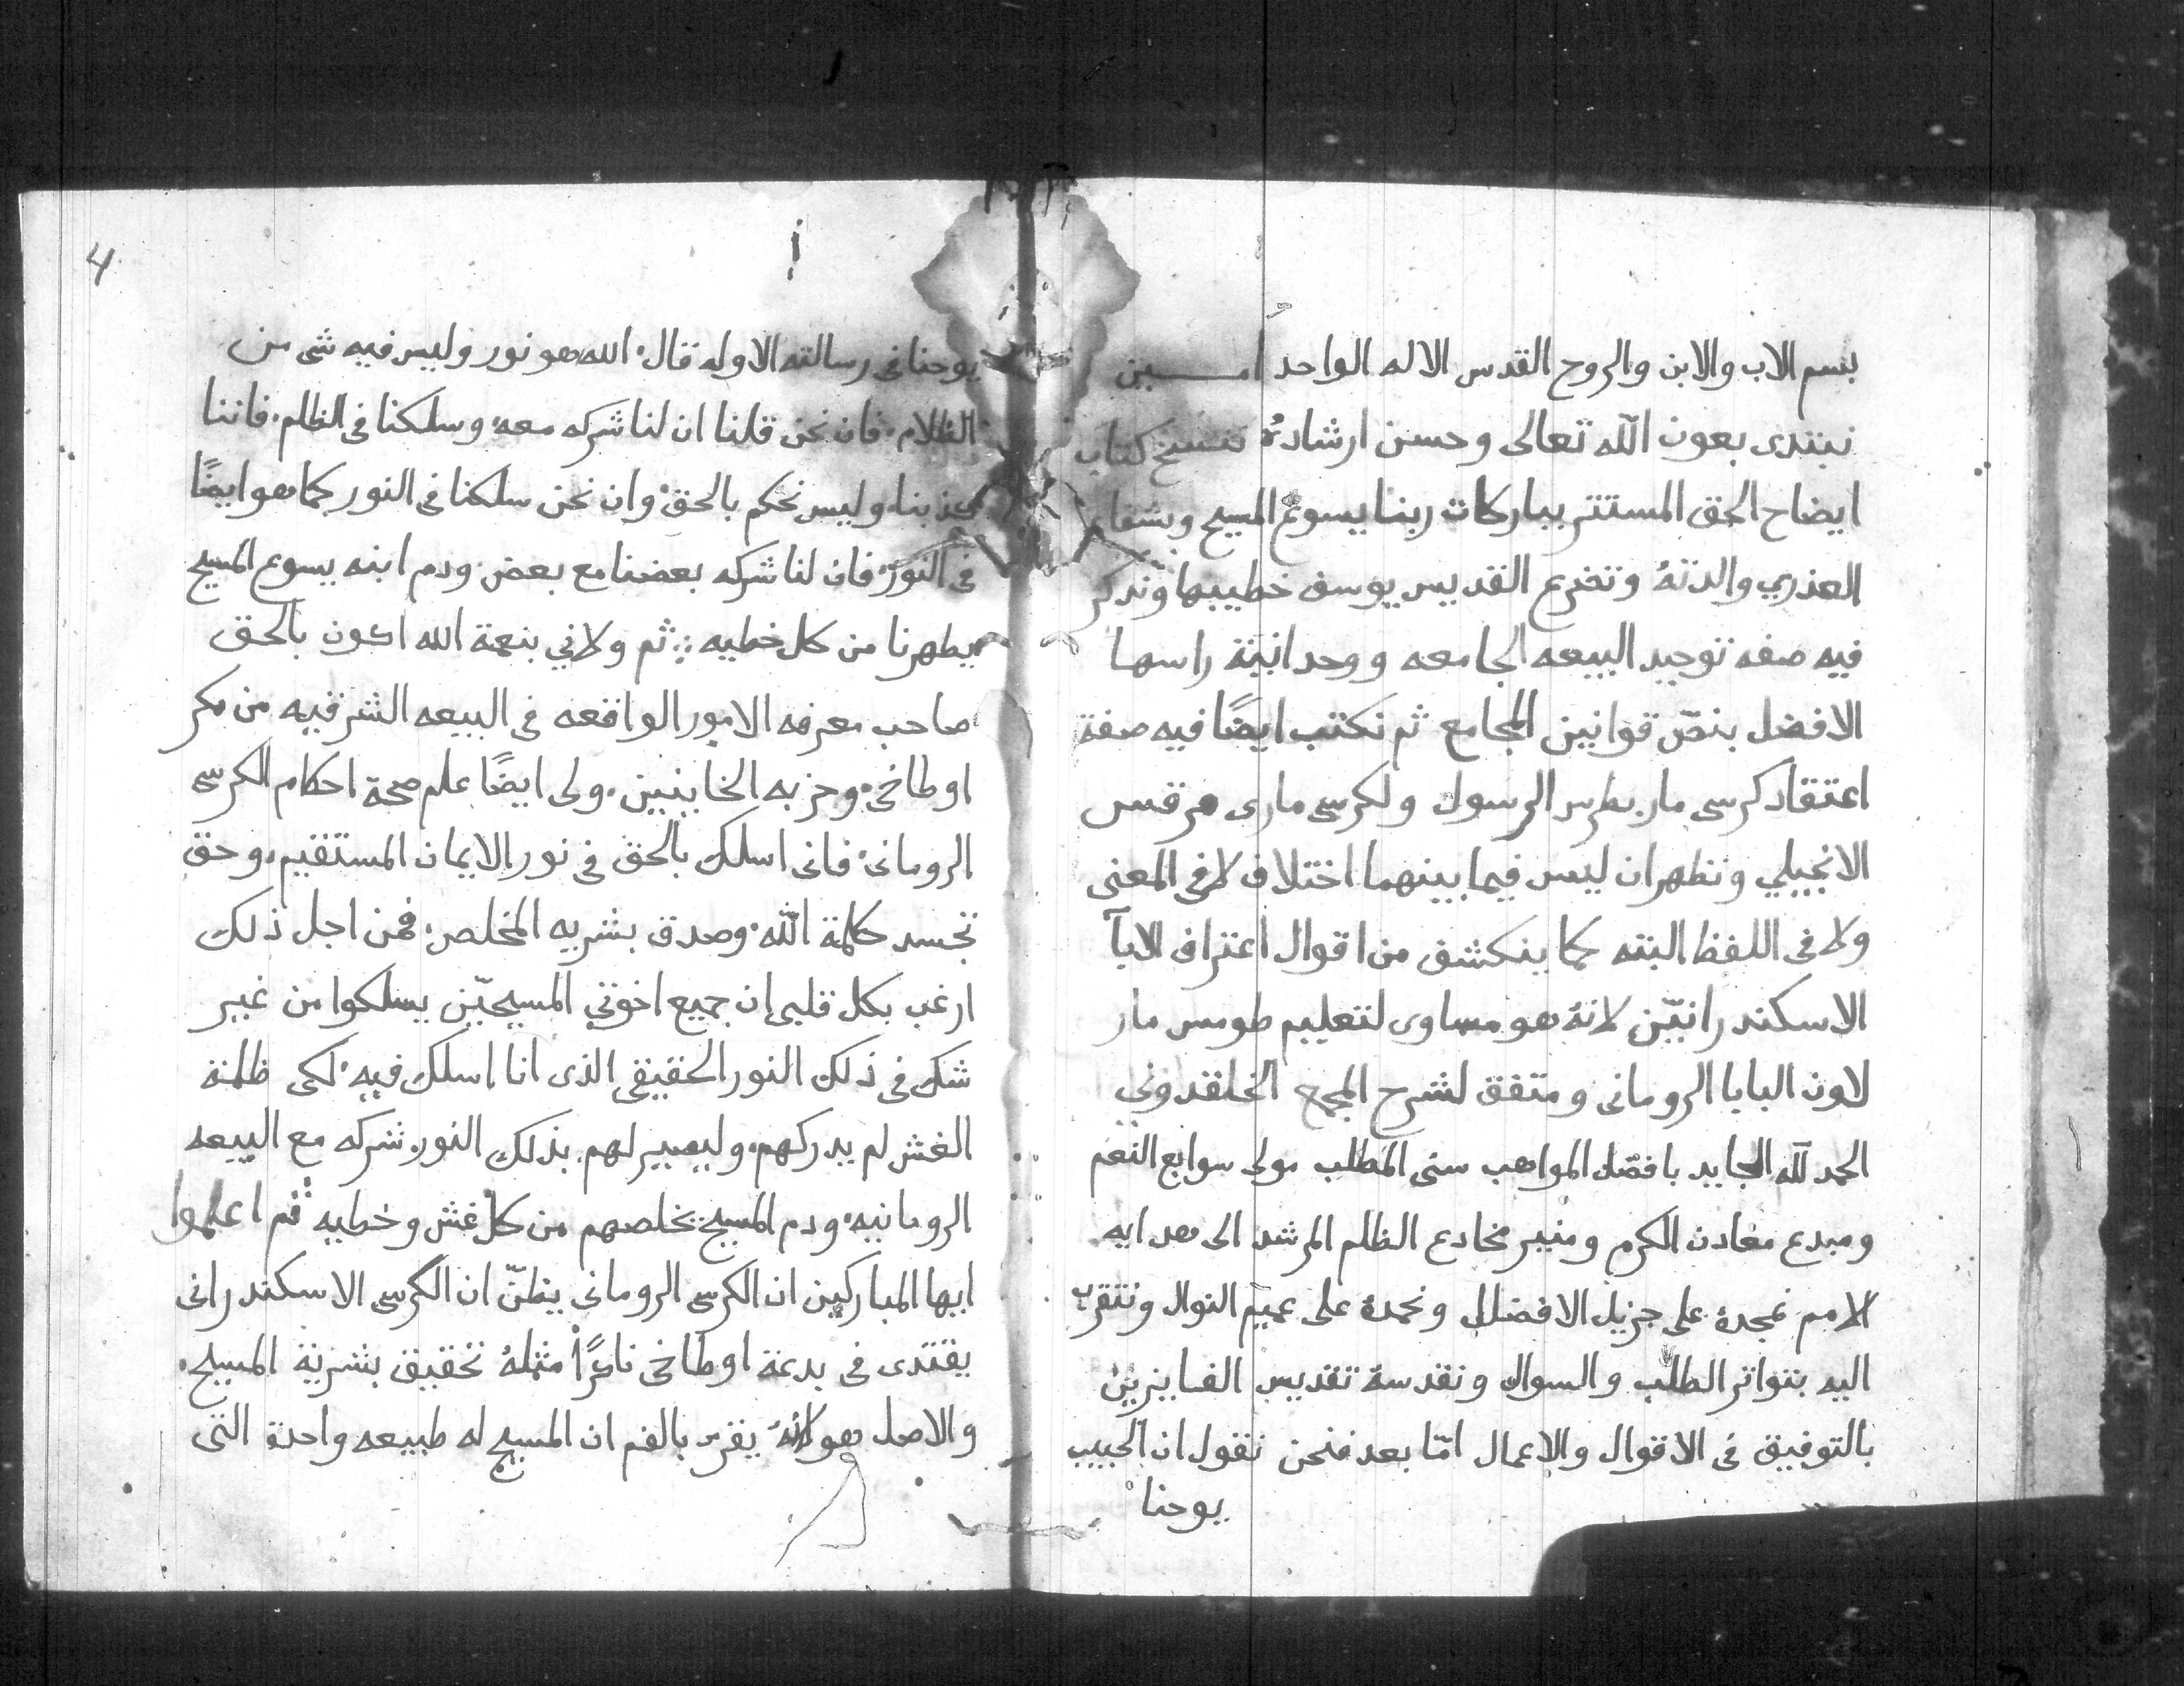 بسم الاب والابن والروح القدس الاله الواحد امـــين
نبتدى بعون اللّه تعالى وحسن ارشادهُ ننسخ كتاب
ايضاح الحق المستتر ببركات ربنا يسوع المسيح وبشفاعـ
العذري والدتهُ وتضرع القديس يوسف خطيبها ونذكر
فيه صفه توحيد البيعه الجامعه ووحدانيّة راسها
الافضل بنصّ قوانين المجامع ثم نكتب ايضًا فيه صفة
اعتقاد كرسى مار بطرس الرسول ولكرسى مارى مرقس
الانجيلي ونظهر ان ليس فيما بينهما اختلاف لا فى المعنى
ولا فى اللفظ البته كما ينكشف من اقوال اعتراف الابآ
الاسكندرانيّن لانهُ هو مساوى لتعليم طومس مار
لاون البابا الرومانى ومتفق لشرح المجمع الخلقدونى
الحمد للّه الجايد بافضل المواهب سنى المطلب مولى سوابع النعم
ومبدع معادن الكرم ومنير مخادع الظلم المرشد الى هدايه
الامم نمجدهُ على جزيل الافضال ونحمدهُ على عميم النوال ونتقرب
اليه بتواتر الطلب والسوال ونقدسهُ تقديس الفايزين
بالتوفيق فى الاقوال والاعمال امّا بعد فنحن نقول ان الحبيب
يوحنا
4
يوحنا فى رسالته الاوله قال. الله هو نور وليس فيه شى من
الظلام. فان نحن قلنا ان لنا شركه معه. وسلكنا فى الظلم. فاننا
كذبنا. وليس نحكم بالحق. وان نحن سلكنا فى النور كما هو ايضًا
فى النور. فان لنا شركه بعضنا مع بعض. ودم ابنه يسوع المسيح
يطهرنا من كل خطيه : ثم ولاني بنعمة الله اكون بالحق
صاحب معرفه الامور الواقعه فى البيعه الشرقيه من مكر
اوطاخى. وحزبه الخاينين. ولى ايضًا علم صحة احكام الكرسى
الرومانى. فانى اسلك بالحق فى نور الايمان المستقيم. وحق
تجسد كلمة اللّه. وصدق بشريه المخلص. فمن اجل ذلك
ارغب بكل قلبى ان جميع اخوتي المسيحيّن يسلكوا من غير
شك فى ذلك النور الحقيقى الذى انا اسلك فيه. لكى ظلمة
الغش لم يدركهم. وليصير لهم بذلك النور شركه مع البيعه
الرومانيه. ودم المسيح يخلصهم من كل غش وخطيه ثم اعلموا
ايها المباركين ان الكرسى الرومانى يظنّ ان الكرسى الاسكندرانى
يقتدى فى بدعة اوطاخى ناكرًا مثلهُ تحقيق بشرية المسيح.
والاصل هو لانهُ يقرّ بالفم ان المسيح له طبيعه واحدة التى